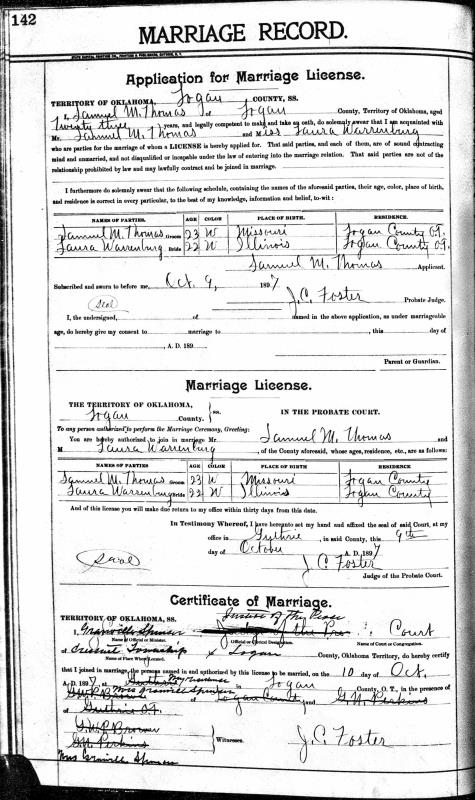 142
MARRIAGE RECORD.
Application for Marriage License.
TERRITORY OF OKLAHOMA, Logan COUNTY, SS.
I, Samuel M. Thomas of Logan County, Territory of Oklahoma, aged
Twenty three years, and legally competent to make and take an oath, do solemnly swear that I am acquainted with
Mr. Samuel M. Thomas and Miss Laura Warrenburg
who are parties for the marriage of whom a LICENSE is hereby applied for. That said parties, and each of them, are of sound contracting
mind and unmarried, and not disqualified or incapable under the law of entering into the marriage relation. That said parties are not of the
relationship prohibited by law and may lawfully contract and be joined in marriage.
I furthermore do solemnly swear that the following schedule, containing the names of the aforesaid parties, their age, color, place of birth,
and residence is correct in every particular, to the best of my knowledge, information and belief, to-wit:
NAMES OF PARTIES. AGE COLOR PLACE OF BIRTH. RESIDENCE.
Samuel M. Thomas Groom 23 W Missouri Logan County O.T.
Laura Warrenburg Bride 22 W Illinois Logan County O.T.
Samuel M. Thomas Applicant.
Subscribed and sworn to before me, Oct 9, 1897
J.C. Foster Probate Judge.
Seal
I, the undersigned, of named in the above application, as under marriageable
age, do hereby give my consent to marriage to , this day of
, A. D. 189
Parent or Guardian.
Marriage License.
THE TERRITORY OF OKLAHOMA, SS. IN THE PROBATE COURT.
Logan County.
To any person authorized to perform the Marriage Ceremony, Greeting:
You are hereby authorized to join in marriage Mr. Samuel M. Thomas and
M Laura Warrenburg, of the County aforesaid, whose ages, residence, etc., are as follows:
NAMES OF PARTIES AGE COLOR PLACE OF BIRTH RESIDENCE
Samuel M. Thomas Groom 23 W Missouri Logan County
Laura Warrenburg Bride 22 W Illinois Logan County
And of this license you will make due return to my office within thirty days from this date.
In Testimony Whereof, I have hereunto set my hand and affixed the seal of said Court, at my
office in Guthrie, in said County, this 9th
day of October A. D. 1897
Seal J. C. Foster
Judge of the Probate Court.
Certificate of Marriage.
Justice of the Peace
TERRITORY OF OKLAHOMA, SS.
I, Granville Spencer Judge of the Pro Court
Name of Official or Minister. Official or Clerical Designation. Name of Court or Congregation.
of Township Logan County, Oklahoma Territory, do hereby certify
Name of Place Where Located.
that I joined in marriage, the persons named in and authorized by this license to be married, on the 10 day of Oct.
A. D. 1897, at Guthrie in Logan County, O. T., in the presence of
G.W.P. Brown Mrs Granville Spencer of Logan County and G.N. Perkins
of Guthrie O.T.
G.W.P. Brown
G.N. Perkins Witnesses. J.C. Foster
Mrs Granville Spencer